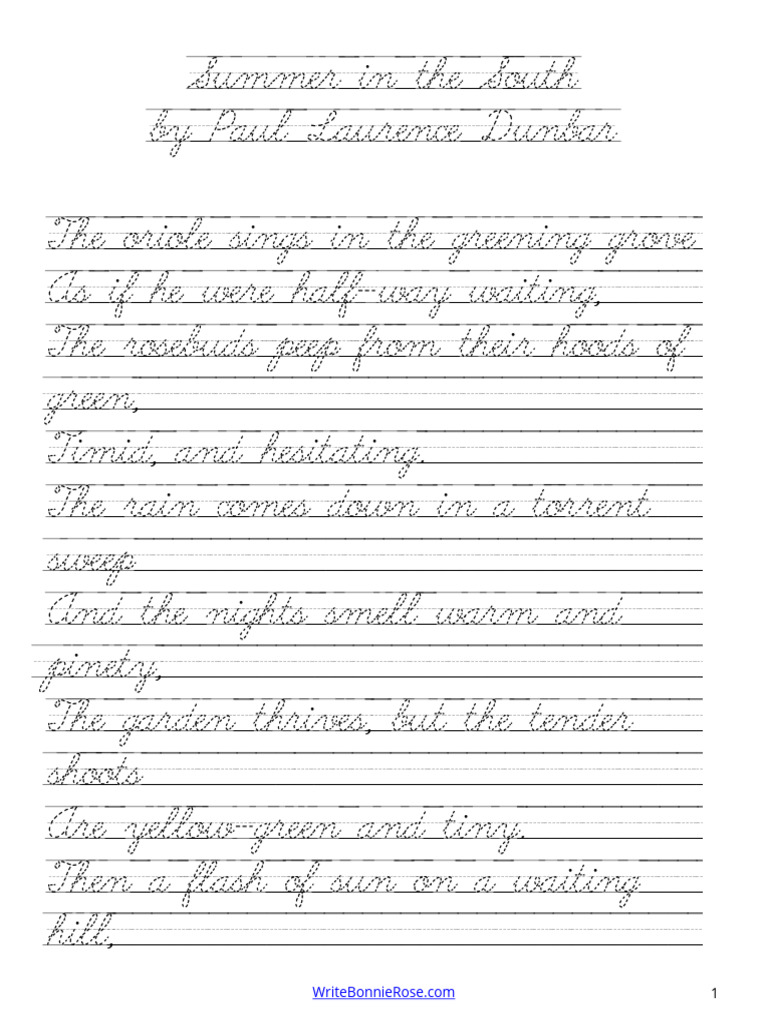 Summer in the South
by Paul Laurence Dunbar
The oriole sings in the greening grove
As if he were half-way waiting,
The rosebuds peep from their hoods of
green,
Timid, and hesitating.
The rain comes down in a torrent
sweep
And the nights smell warm and
pinety,
The garden thrives, but the tender
shoots
Are yellow-green and tiny.
Then a flash of sun on a waiting
hill,
WriteBonnieRose.com
1